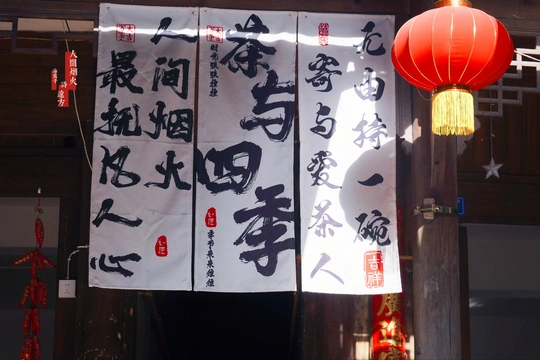 无由持一碗
寄与愛茶人
吉祥
茶与四季
人间烟火
最抚凡人心
人間烟火
遠方